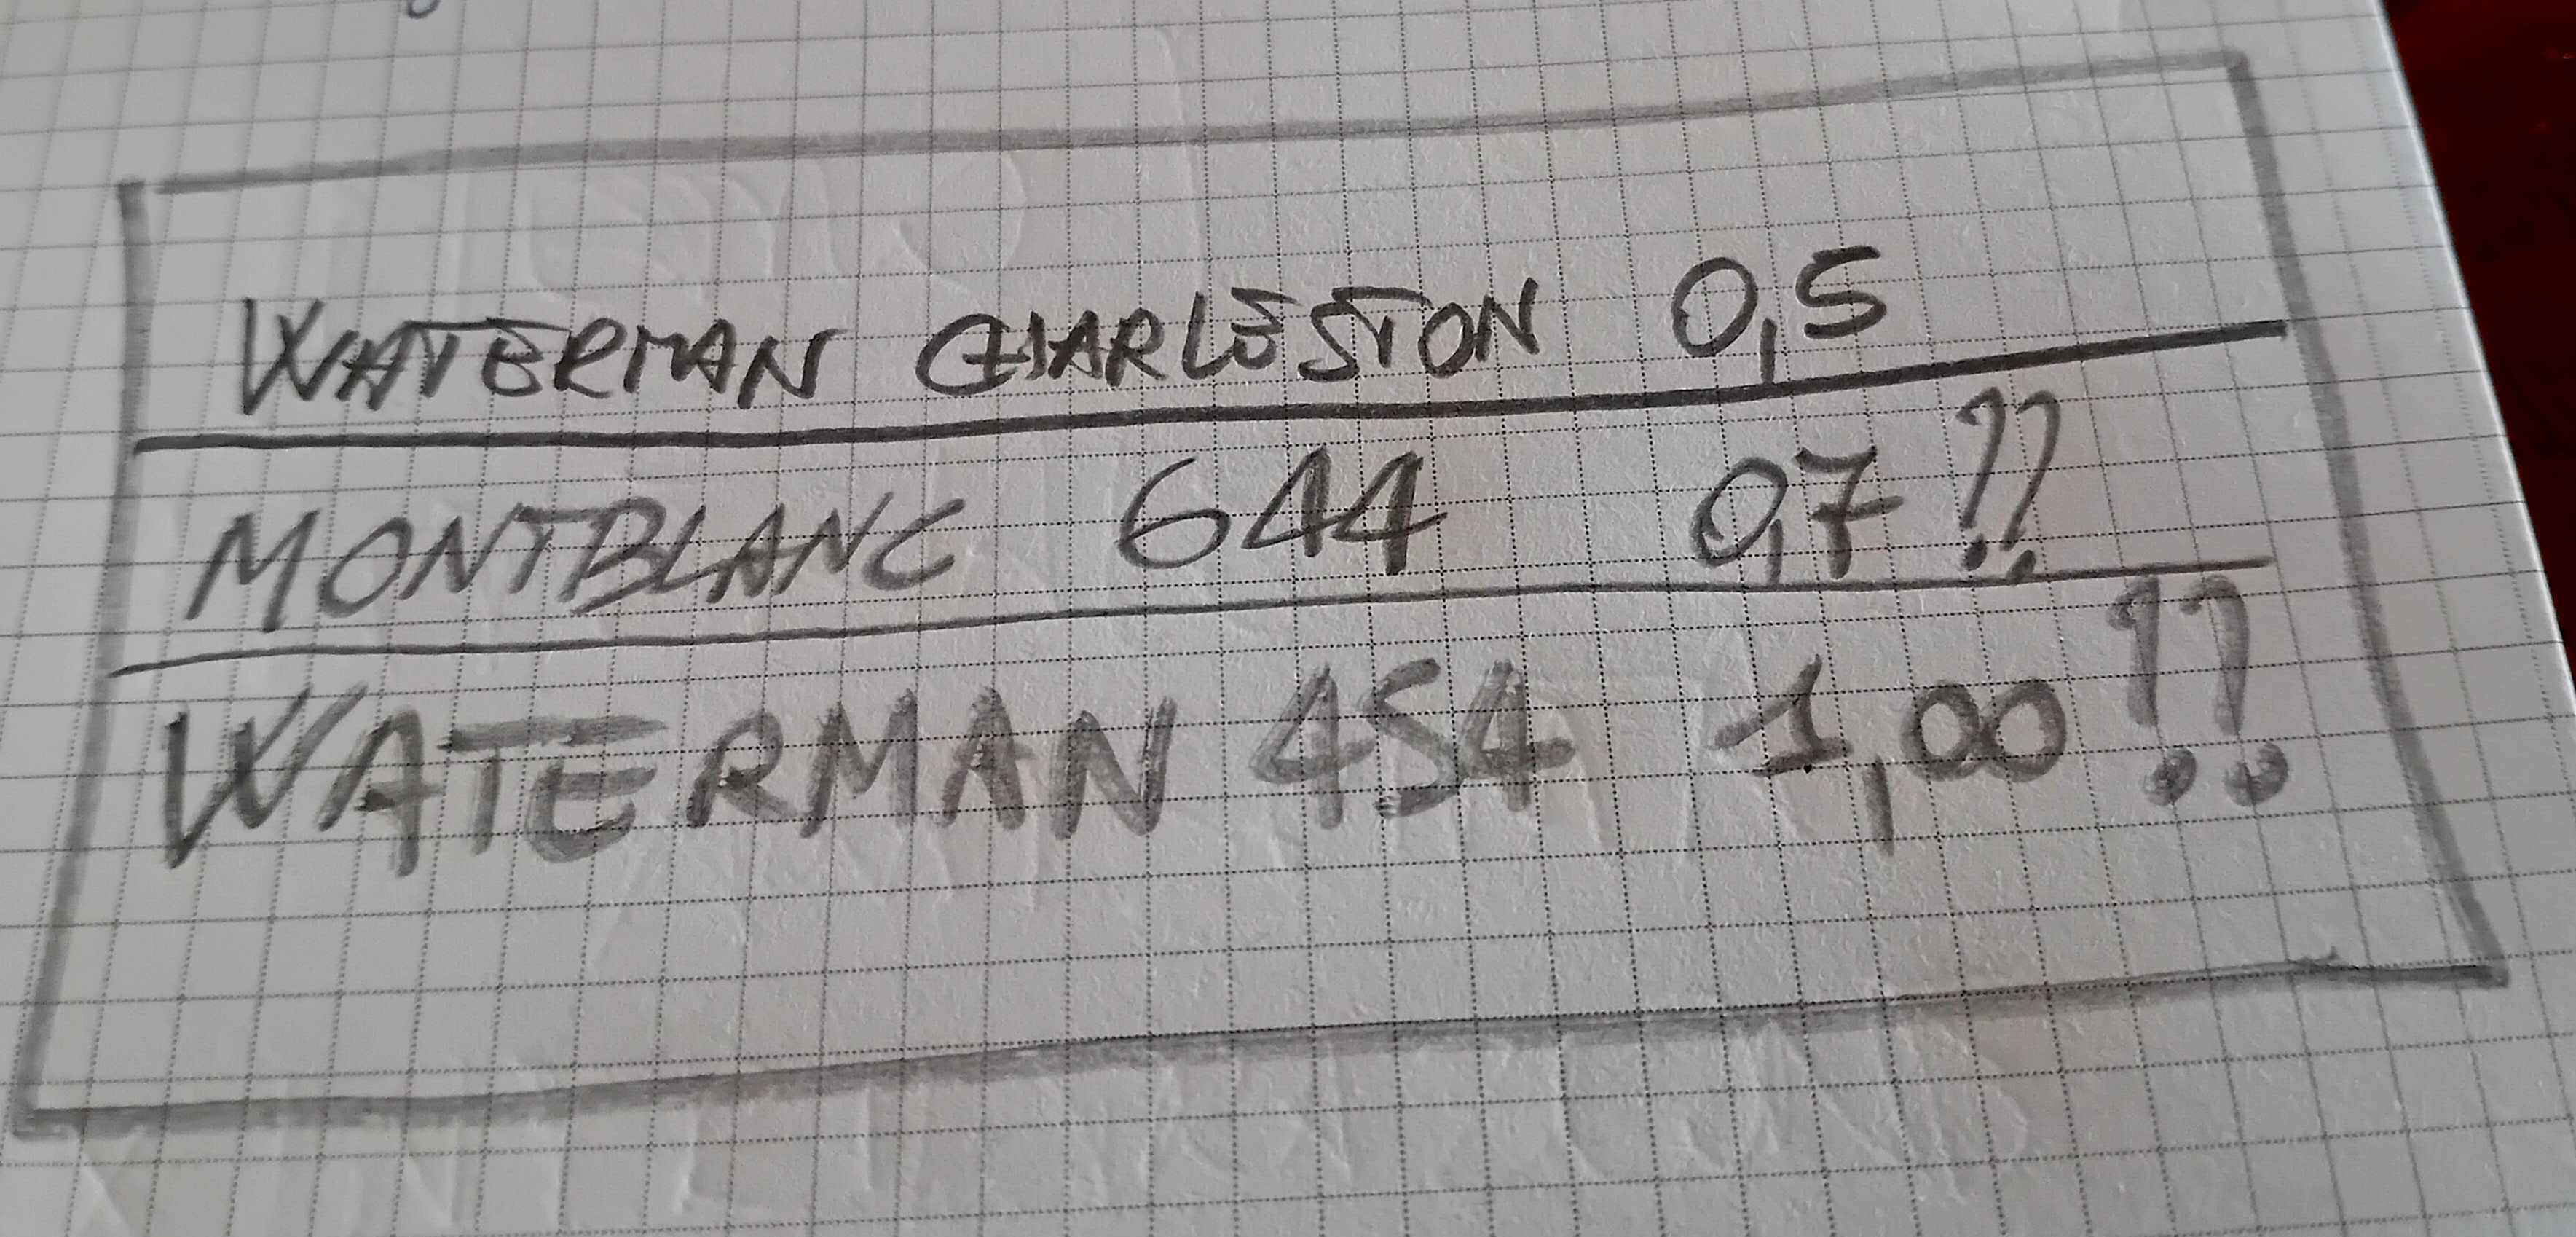 WATERMAN CHARLESTON 0,5
MONTBLANC 644 0,7??
WATERMAN 454 1,00??